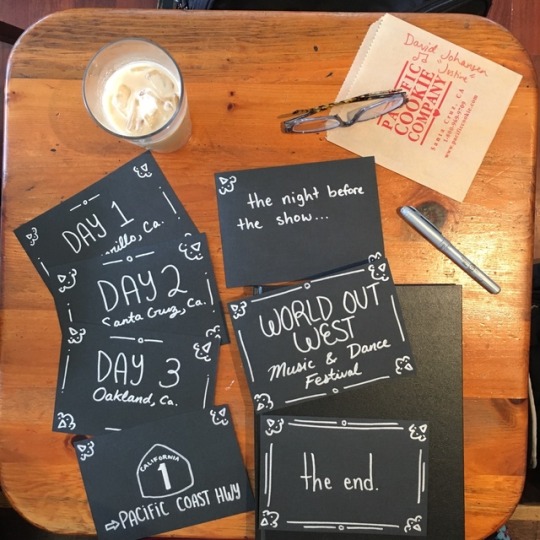 David Johansen
"Justine"
PACIFIC
COOKIE
COMPANY
Santa Cruz, CA
www.pacificcookie.com
DAY 1
Ca.
DAY 2
Santa Cruz, Ca.
DAY 3
Oakland, Ca.
CALIFORNIA
1
⇨PACIFIC COAST HWY
the night before
the show...
WORLD OUT
WEST
Music & Dance
Festival
the end.